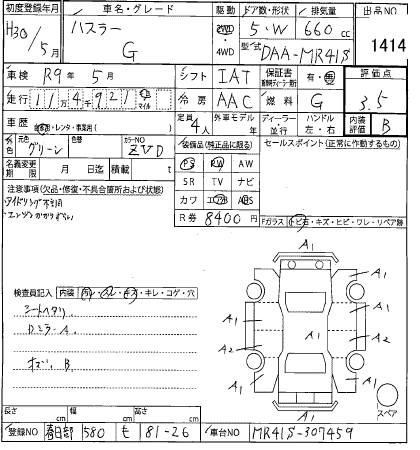 初度登録年月 車名・グレード 駆動 ドア数・形状 排気量 出品NO
H30/5月 ハスラー G 2WD・4WD 5・W 660cc
型式 DAA-MR41S 1414
車検 R9年 5月 シフト IAT 保証書 有・無 評価点
走行 11万4千921 km マイル 冷房 AAC 燃料 G 3.5
車歴 自家用・レンタ・事業用( ) 定員 4人 外車モデル 年 ディーラー・並行 ハンドル 左・右 内装評価 B
外色 元色 グリーン 色替 カラーNO ZVD 装備品(純正品に限る) セールスポイント(正常に作動するもの)
名義変更期限 月 日 積載 t PS PW AW
注意事項(欠品・修復・不具合箇所および状態) SR TV ナビ
アイドリング不調 カワ エアB ABS
エンジンかかりずらい R券 8400円 Fガラス トビ石・キズ・ヒビ・ワレ・リペア跡
検査員記入 内装 汚・スレ・キズ・キレ・コゲ・穴
シートヘタリ
DミラーA
キズ、B
A1
A1
A1
A1
A1
A1
A1
A2
A2
A1
A1
A1
スペア
長さ cm 幅 cm 高さ cm
登録NO 春日部 580 も 81-26 車台NO MR41S-307459